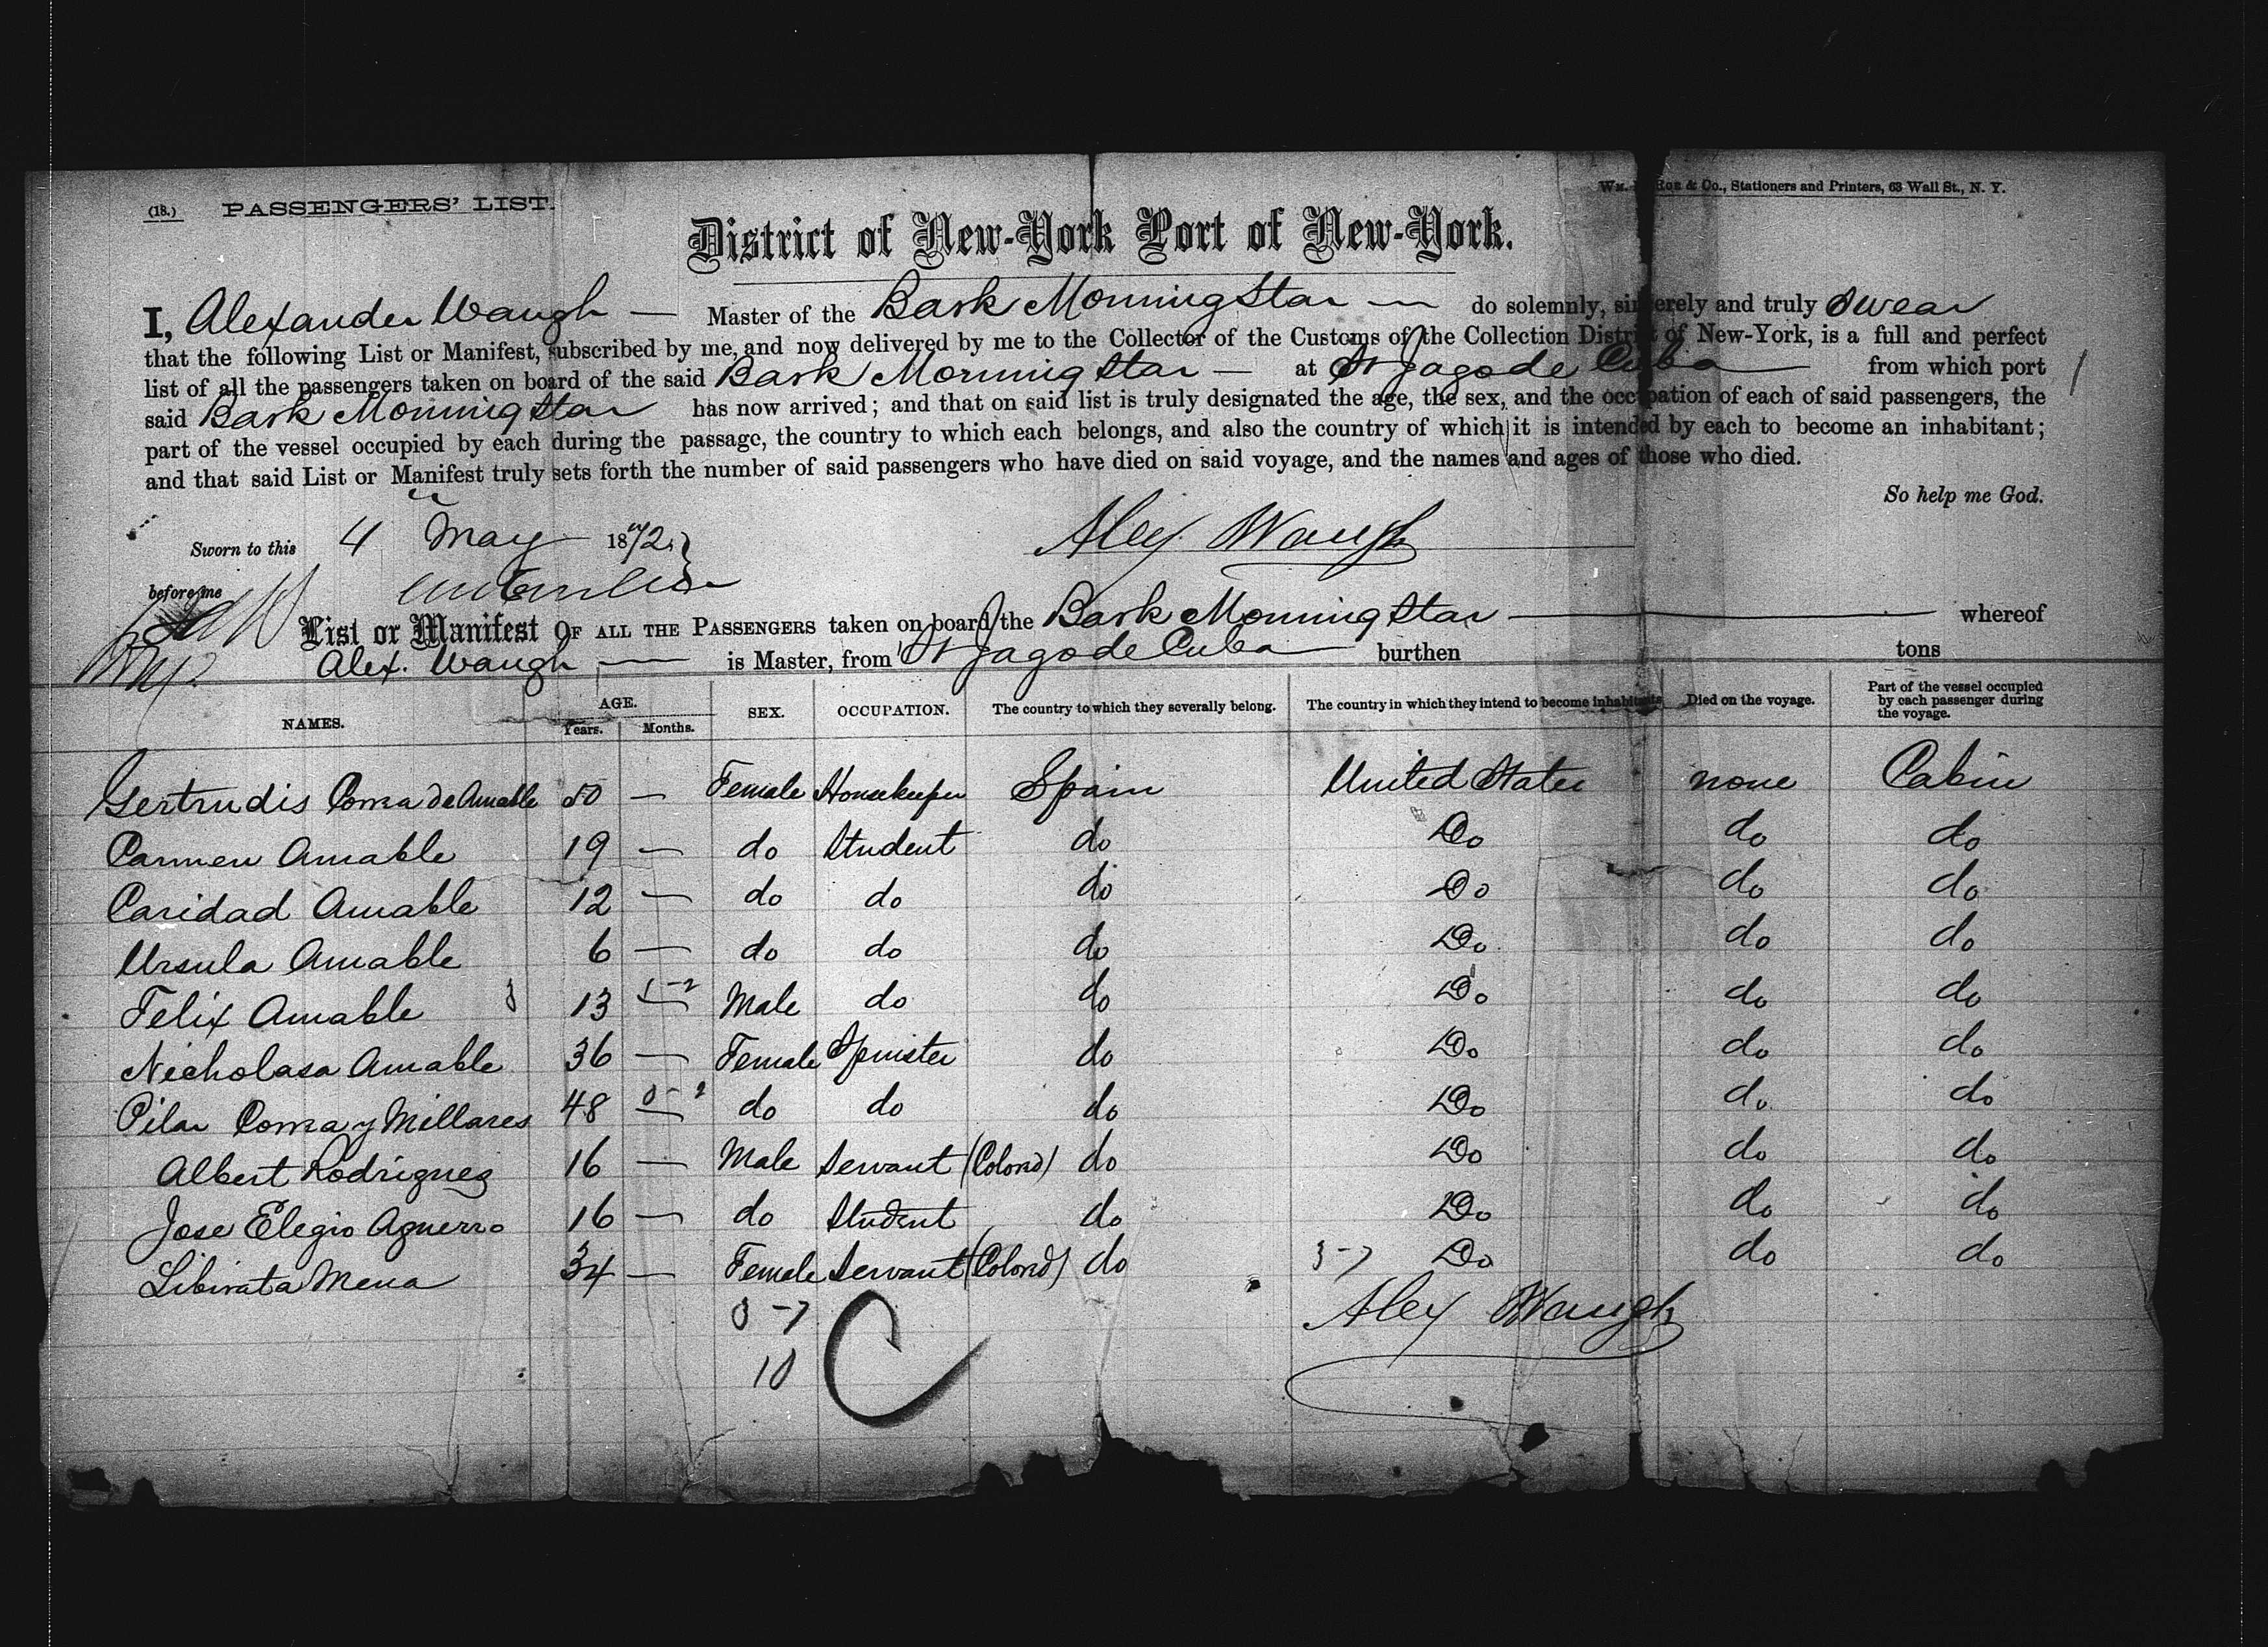 (18.) PASSENGERS' LIST.
& Co., Stationers and Printers, 63 Wall St., N. Y.
District of New-York Port of New-York.
I, Alexander Waugh — Master of the Bark Morning Star — do solemnly, sincerely and truly swear
that the following List or Manifest, subscribed by me, and now delivered by me to the Collector of the Customs of the Collection District of New-York, is a full and perfect
list of all the passengers taken on board of the said Bark Morning Star — at St Jago de Cuba from which port
said Bark Morning Star has now arrived; and that on said list is truly designated the age, the sex, and the occupation of each of said passengers, the
part of the vessel occupied by each during the passage, the country to which each belongs, and also the country of which it is intended by each to become an inhabitant;
and that said List or Manifest truly sets forth the number of said passengers who have died on said voyage, and the names and ages of those who died.
So help me God.
Sworn to this 4 May 1872 Alex Waugh
before me
List or Manifest OF ALL THE PASSENGERS taken on board the Bark Morning Star — whereof
Alex. Waugh — is Master, from St Jago de Cuba burthen tons
NAMES. AGE. Years. Months. SEX. OCCUPATION. The country to which they severally belong. The country in which they intend to become inhabitants Died on the voyage. Part of the vessel occupied by each passenger during the voyage.
Gertrudis Coma de Amable 50 — Female Housekeeper Spain United States none Cabin
Carmen Amable 19 — do Student do Do do do
Caridad Amable 12 — do do do Do do do
Ursula Amable 6 — do do do Do do do
Felix Amable 13 — Male do do Do do do
Nicholasa Amable 36 — Female Spinster do Do do do
Pilar Coma y Millares 48 — do do do Do do do
Albert Rodriguez 16 — Male Servant (Colord) do Do do do
Jose Elegio Aguerro 16 — do Student do Do do do
Libirata Mena 34 — Female Servant (Colord) do Do do do
Alex Waugh
10
C